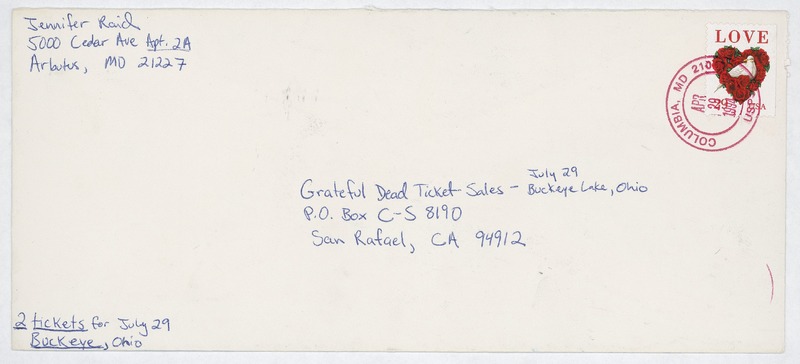 Jennifer Raid
5000 Cedar Ave Apt. 2A
Arbutus, MD 21227
LOVE
USA
COLUMBIA, MD
USPS
APR
29
Grateful Dead Ticket Sales - July 29
Buckeye Lake, Ohio
P.O. Box C-S 8190
San Rafael, CA 94912
2 tickets for July 29
Buckeye, Ohio